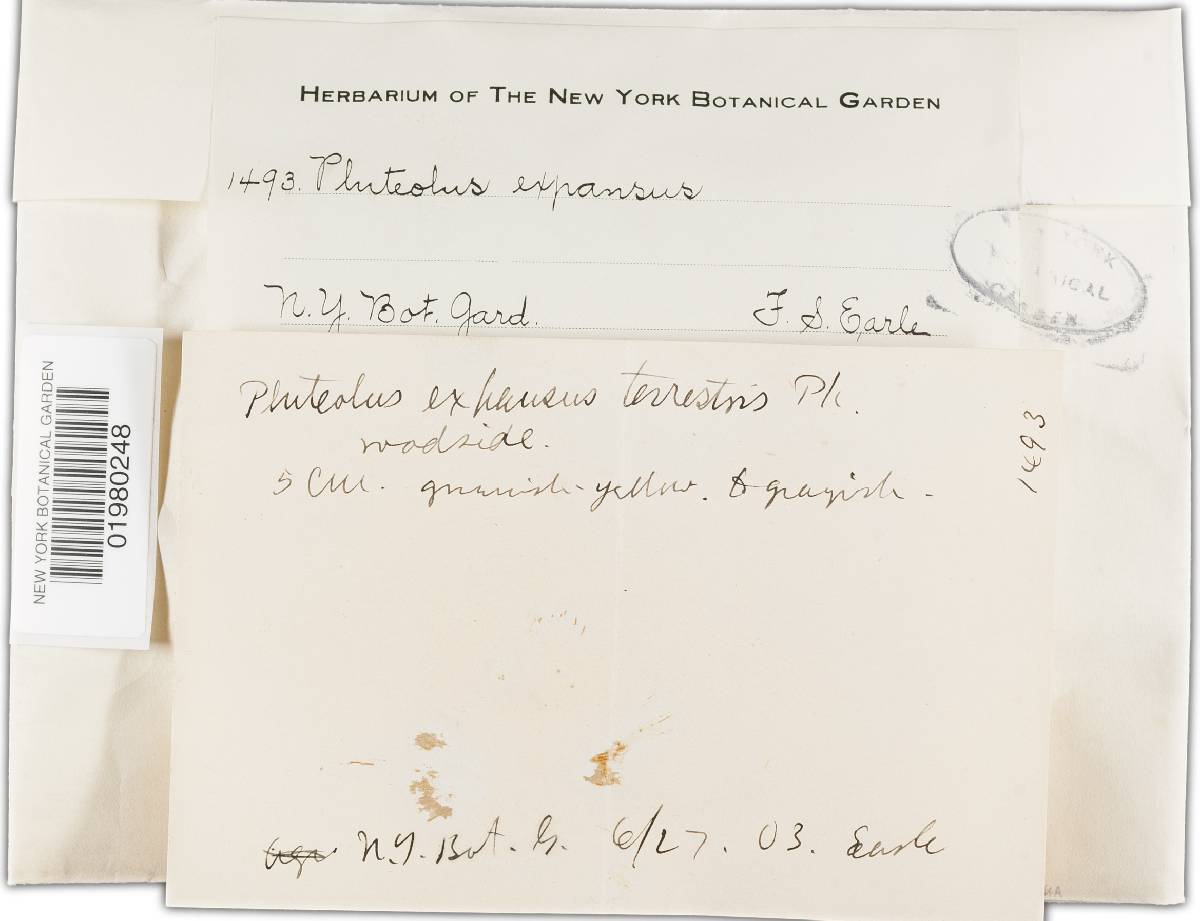 HERBARIUM OF THE NEW YORK BOTANICAL GARDEN
1493. Pluteolus expansus
N.Y. Bot. Gard. F. S. Earle
YORK
BOTANICAL
GARDEN
NEW YORK BOTANICAL GARDEN
01980248
Pluteolus expansus terrestris Pk.
roadside.
5 cm. greenish-yellow. to grayish -
1493
N.Y. Bot. G. 6/27. 03. Earle